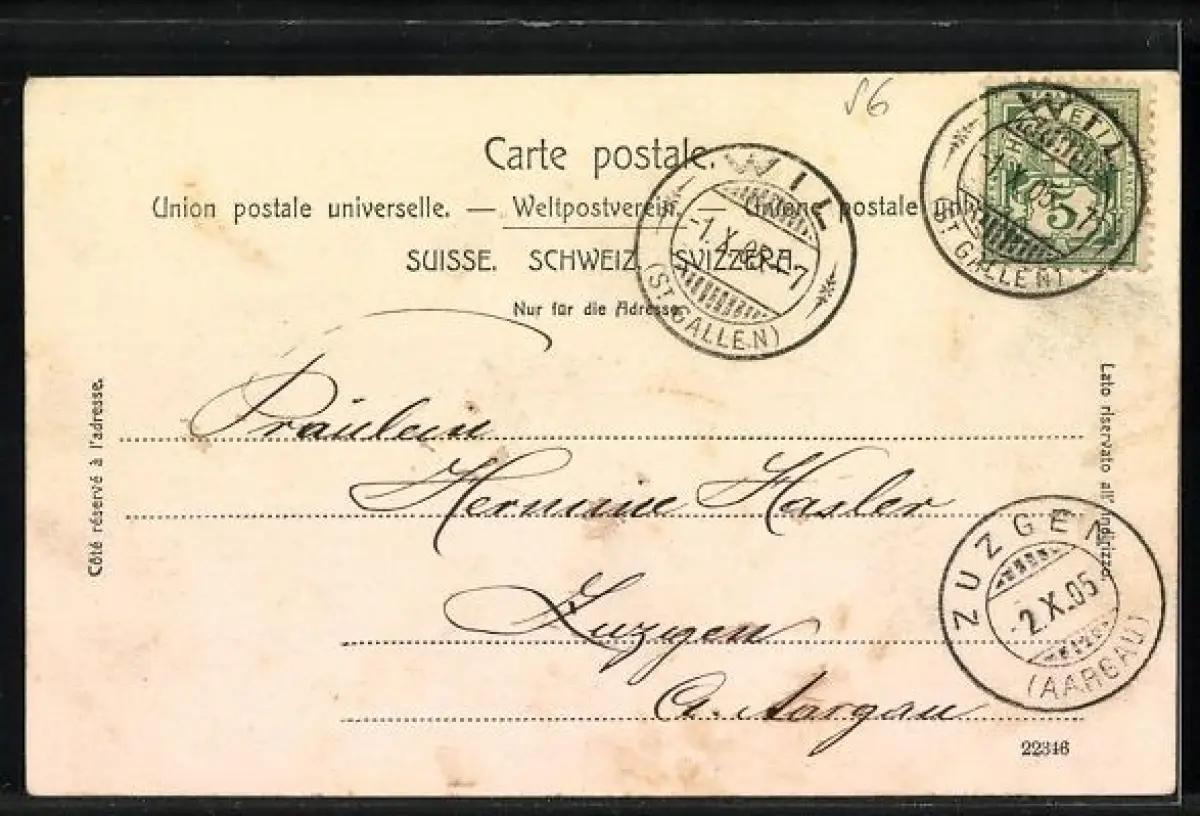 56
Carte postale.
Union postale universelle. — Weltpostverein. — Unione postale univ
SUISSE. SCHWEIZ. SVIZZERA.
Nur für die Adresse.
WIL
-1.X.05.-7
(ST. GALLEN)
HELVETIA
5
WIL
-1.X.05.-7
(ST. GALLEN)
Côté réservé à l'adresse.
Lato riservato all' indirizzo
Fräulein
Hermine Hasler
Zuzgen
Ct. Aargau
ZUZGEN
-2.X.05
(AARGAU)
22346